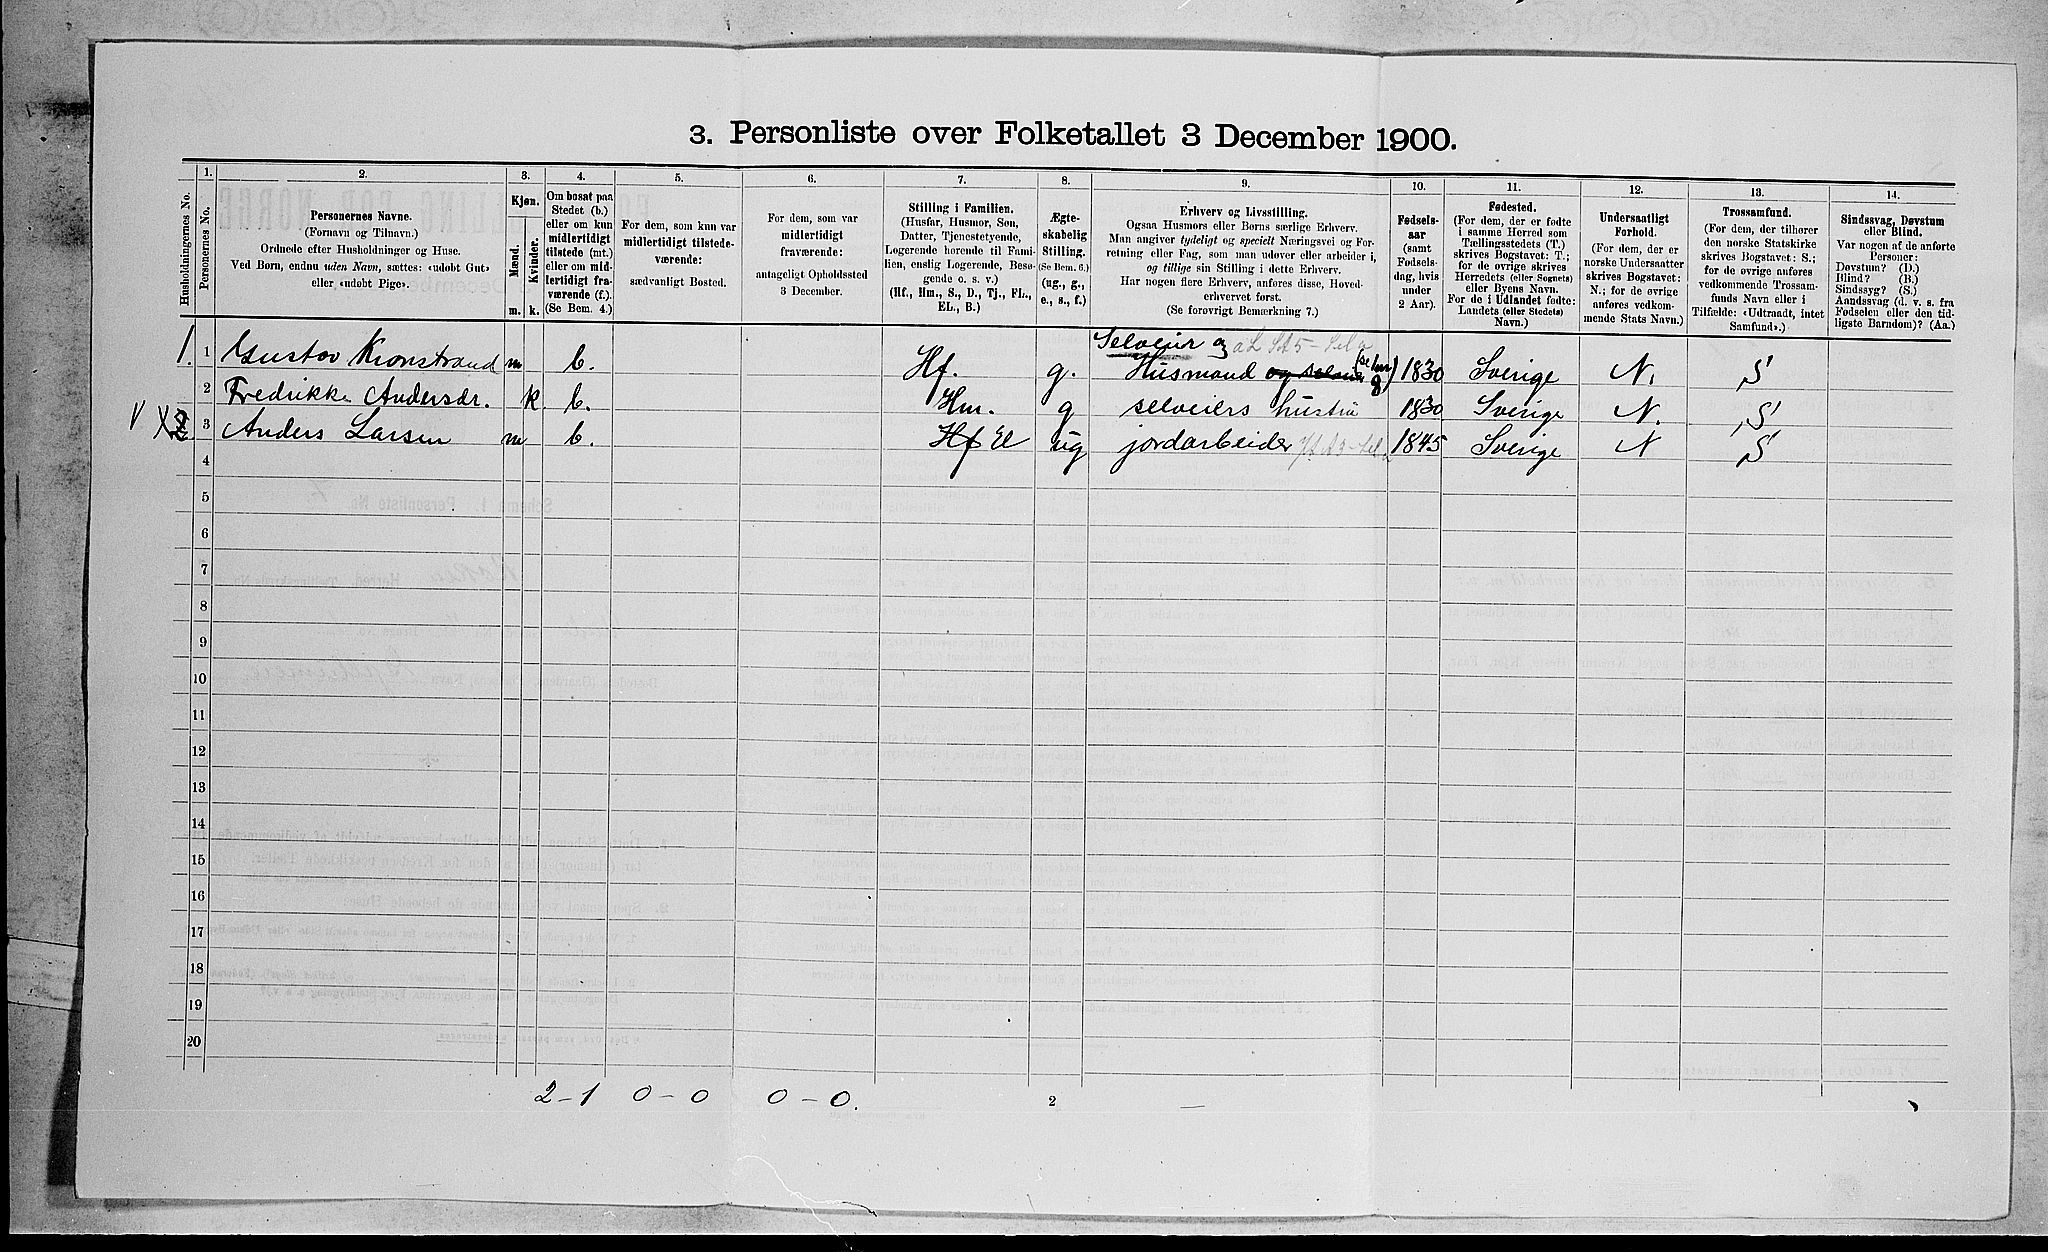 3. Personliste over Folketallet 3 December 1900.
Husholdningernes No.
1.
Personernes No.
2.
Personernes Navne.
(Fornavn og Tilnavn.)
Ordnede efter Husholdninger og Huse.
Ved Børn, endnu uden Navn, sættes: «udøbt Gut»
eller «udøbt Pige».
3.
Kjøn.
Mænd.
Kvinder.
m.
k.
4.
Om bosat paa
Stedet (b.)
eller om kun
midlertidigt
tilstede (mt.)
eller om mid-
lertidigt fra-
værende (f.).
(Se Bem. 4.)
5.
For dem, som kun var
midlertidigt tilstede-
værende:
sædvanligt Bosted.
6.
For dem, som var
midlertidigt
fraværende:
antageligt Opholdssted
3 December.
7.
Stilling i Familien.
(Husfar, Husmor, Søn,
Datter, Tjenestetyende,
Logerende hørende til Fami-
lien, enslig Logerende, Besø-
gende o. s. v.)
(Hf., Hm., S., D., Tj., FL.,
EL., B.)
8.
Ægte-
skabelig
Stilling.
(Se Bem. 6.)
(ug., g.,
e., s., f.)
9.
Erhverv og Livsstilling.
Ogsaa Husmors eller Børns særlige Erhverv.
Man angiver tydeligt og specielt Næringsvei og For-
retning eller Fag, som man udøver eller arbeider i,
og tillige sin Stilling i dette Erhverv.
Har nogen flere Erhverv, anføres disse, Hoved-
erhvervet først.
(Se forøvrigt Bemærkning 7.)
10.
Fødsels-
aar
(samt
Fødsels-
dag, hvis
under
2 Aar).
11.
Fødested.
(For dem, der er fødte
i samme Herred som
Tællingsstedets (T.)
skrives Bogstavet: T.;
for de øvrige skrives
Herredets (eller Sognets)
eller Byens Navn.
For de i Udlandet fødte:
Landets (eller Stedets)
Navn.)
12.
Undersaatligt
Forhold.
(For dem, der er
norske Undersaatter
skrives Bogstavet:
N.; for de øvrige
anføres vedkom-
mende Stats Navn.)
13.
Trossamfund.
(For dem, der tilhører
den norske Statskirke
skrives Bogstavet: S.;
for de øvrige anføres
vedkommende Trossam-
funds Navn eller i
Tilfælde: «Udtraadt, intet
Samfund».)
14.
Sindssvag, Døvstum
eller Blind.
Var nogen af de anførte
Personer:
Døvstum? (D.)
Blind? (B.)
Sindssyg? (S.)
Aandssvag (d. v. s. fra
Fødselen eller den tid-
ligste Barndom)? (Aa.)
Selveier og
1. 1 Gustav Kronstrand m b. Hf. g. Husmand 1830 Sverige N. S
2 Fredrikke Andersdr. k. b. Hm. g selveiers hustru 1830 Sverige N. S
3 Anders Larsen m b. Hf El ug jordarbeider 1845 Sverige N S
4
5
6
7
8
9
10
11
12
13
14
15
16
17
18
19
20
2-1 0-0 0-0. 2 —